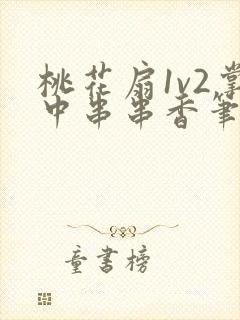 桃花扇1v2掌
中串串香筆
童書榜